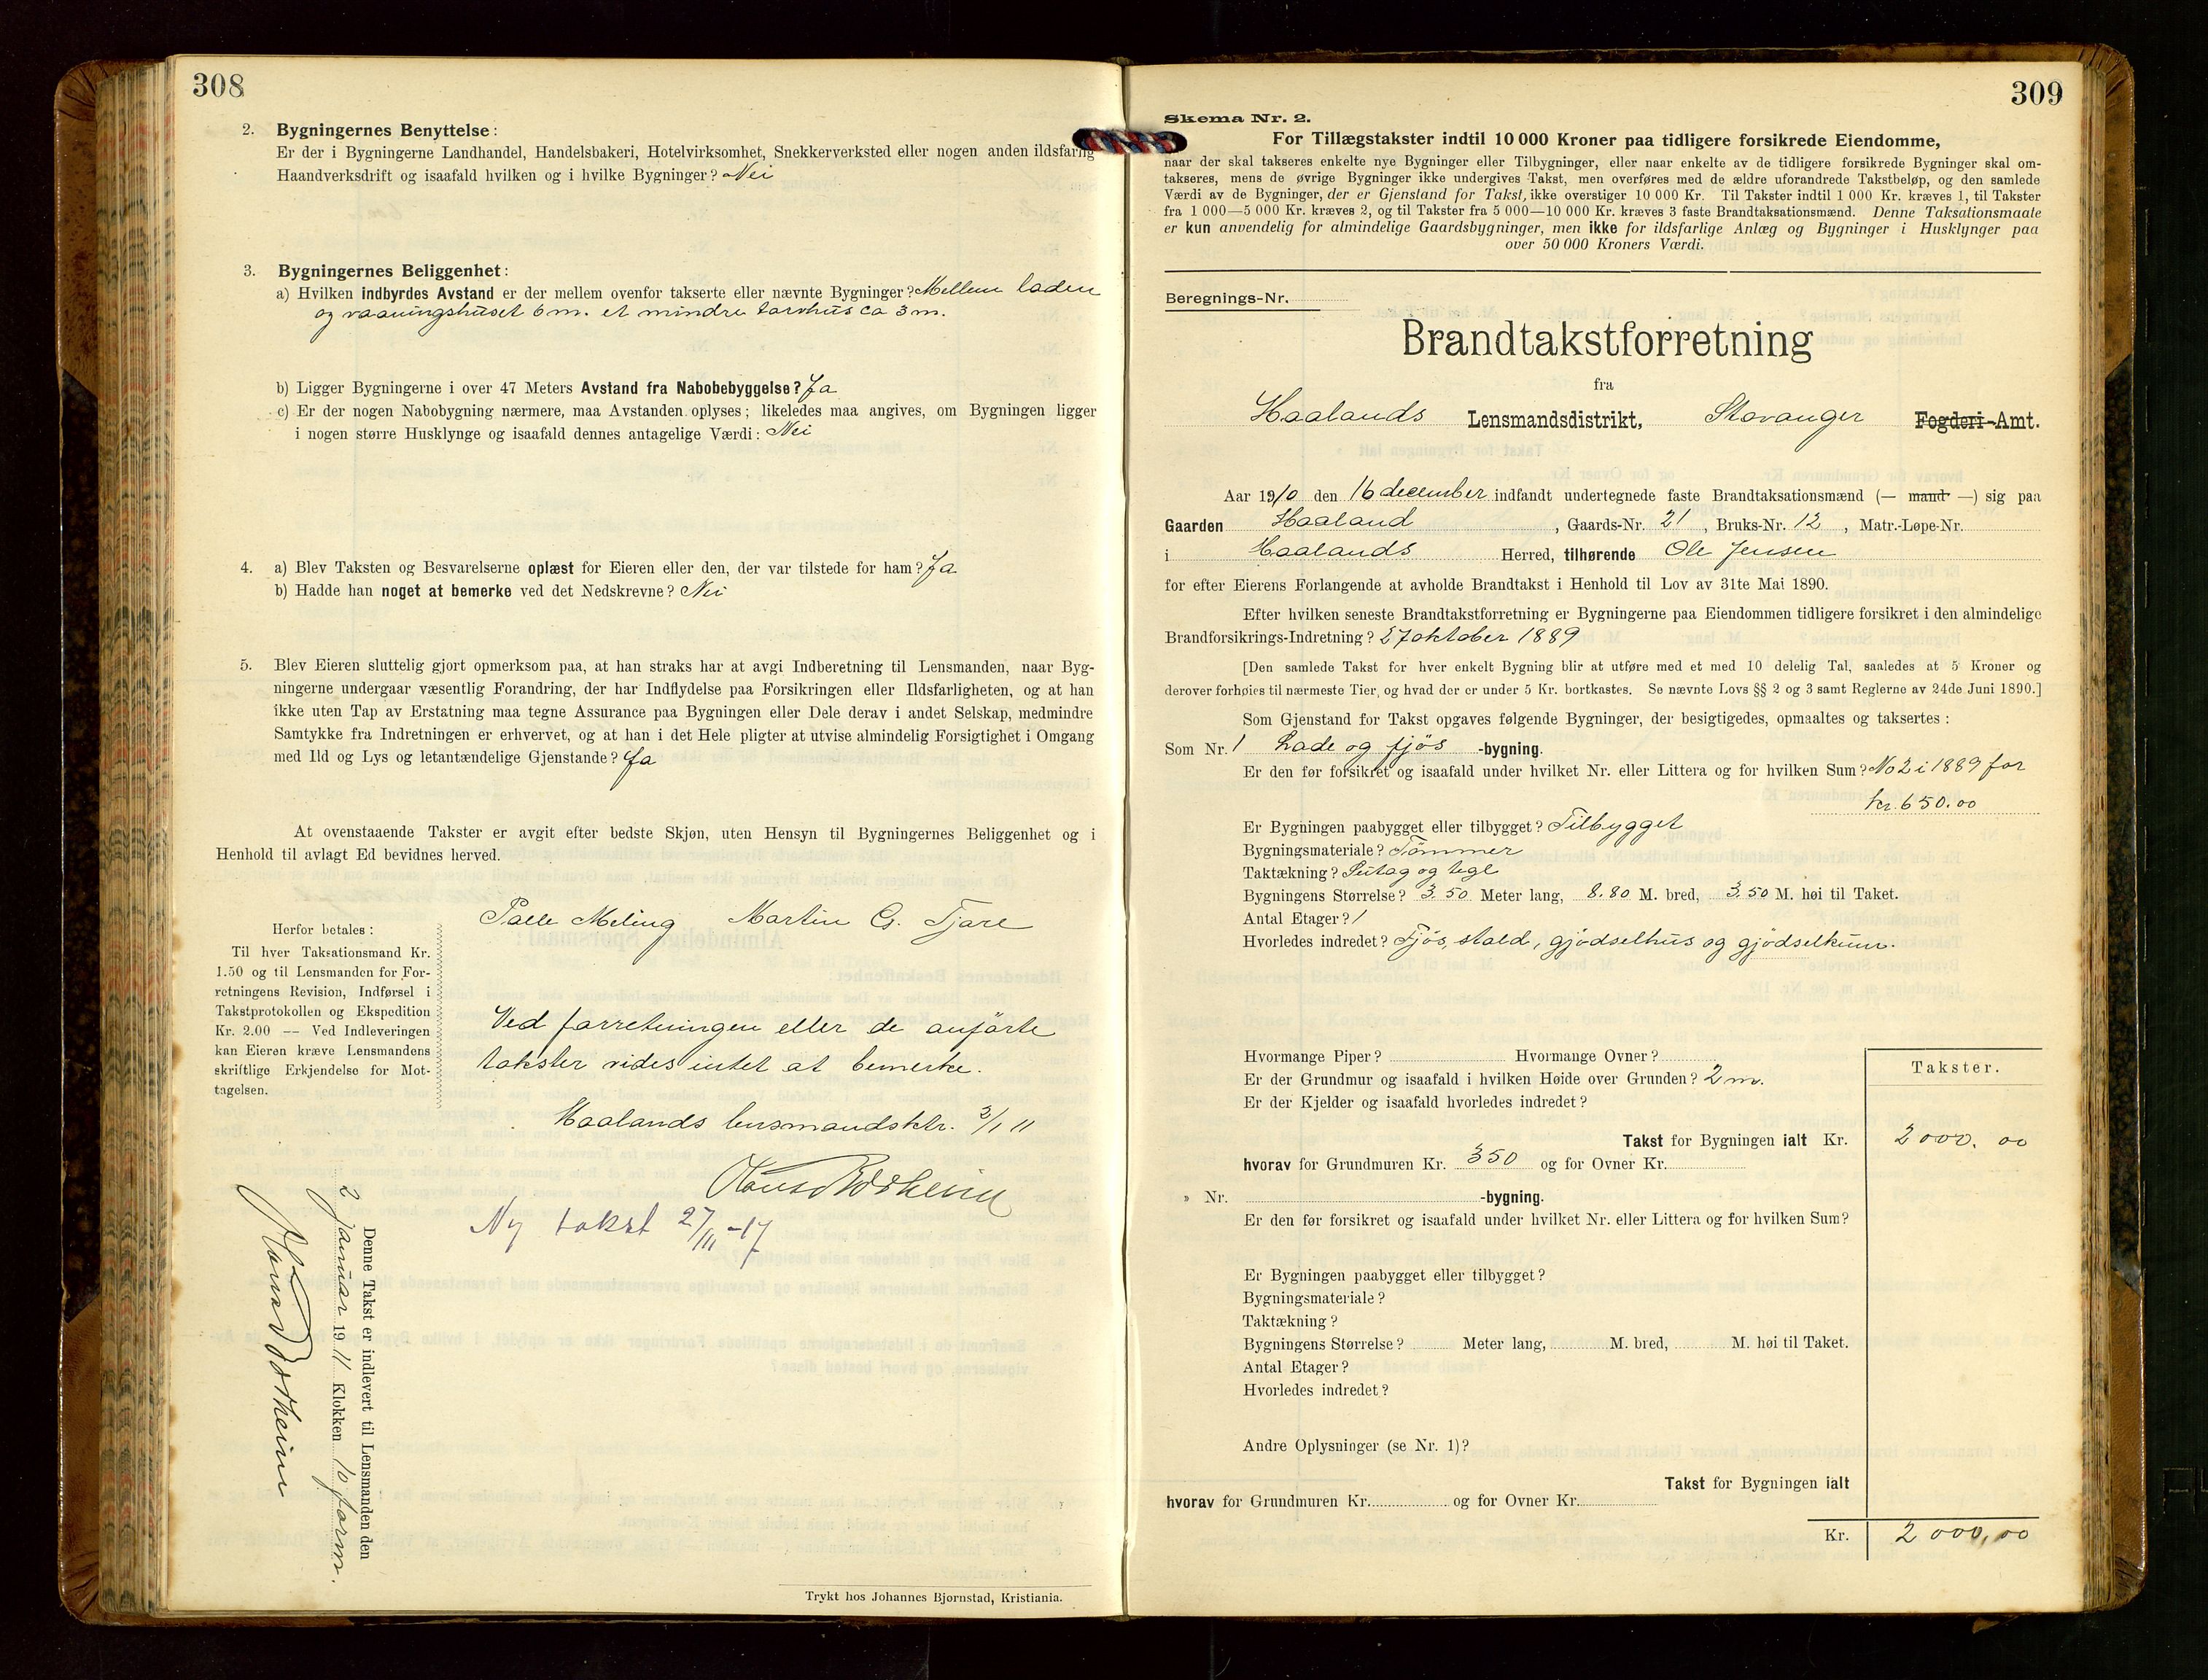 308
2. Bygningernes Benyttelse:
Er der i Bygningerne Landhandel, Handelsbakeri, Hotelvirksomhet, Snekkerverksted eller nogen anden ildsfarlig
Haandverksdrift og isaafald hvilken og i hvilke Bygninger? Nei
3. Bygningernes Beliggenhet:
a) Hvilken indbyrdes Avstand er der mellem ovenfor takserte eller nævnte Bygninger? Mellem laden
og vaaningshuset 6 m. et mindre torvhus ca 3 m.
b) Ligger Bygningerne i over 47 Meters Avstand fra Nabobebyggelse? Ja
c) Er der nogen Nabobygning nærmere, maa Avstanden oplyses; likeledes maa angives, om Bygningen ligger
i nogen større Husklynge og isaafald dennes antagelige Værdi: Nei
4. a) Blev Taksten og Besvarelserne oplæst for Eieren eller den, der var tilstede for ham? Ja
b) Hadde han noget at bemerke ved det Nedskrevne? Nei
5. Blev Eieren sluttelig gjort opmerksom paa, at han straks har at avgi Indberetning til Lensmanden, naar Byg-
ningerne undergaar væsentlig Forandring, der har Indflydelse paa Forsikringen eller Ildsfarligheten, og at han
ikke uten Tap av Erstatning maa tegne Assurance paa Bygningen eller Dele derav i andet Selskap, medmindre
Samtykke fra Indretningen er erhvervet, og at han i det Hele pligter at utvise almindelig Forsigtighet i Omgang
med Ild og Lys og letantændelige Gjenstande? Ja
At ovenstaaende Takster er avgit efter bedste Skjøn, uten Hensyn til Bygningernes Beliggenhet og i
Henhold til avlagt Ed bevidnes herved.
Palle Meling Martin G. Tjare
Herfor betales:
Til hver Taksationsmand Kr.
1.50 og til Lensmanden for For-
retningens Revision, Indførsel i
Takstprotokollen og Ekspedition
Kr. 2.00 — Ved Indleveringen
kan Eieren kræve Lensmandens
skriftlige Erkjendelse for Mot-
tagelsen.
Ved forretningen eller de anförte
takster vides intet at bemerke.
Haalands lensmandsktr. 3/1 11
Ny takst 27/11 -17
Denne Takst er indlevert til Lensmanden den
2 januar 1911 Klokken 10 form.
Trykt hos Johannes Bjørnstad, Kristiania.
309
Skema Nr. 2.
For Tillægstakster indtil 10 000 Kroner paa tidligere forsikrede Eiendomme,
naar der skal takseres enkelte nye Bygninger eller Tilbygninger, eller naar enkelte av de tidligere forsikrede Bygninger skal om-
takseres, mens de øvrige Bygninger ikke undergives Takst, men overføres med de ældre uforandrede Takstbeløp, og den samlede
Værdi av de Bygninger, der er Gjenstand for Takst, ikke overstiger 10 000 Kr. Til Takster indtil 1 000 Kr. kræves 1, til Takster
fra 1 000—5 000 Kr. kræves 2, og til Takster fra 5 000—10 000 Kr. kræves 3 faste Brandtaksationsmænd. Denne Taksationsmaate
er kun anvendelig for almindelige Gaardsbygninger, men ikke for ildsfarlige Anlæg og Bygninger i Husklynger paa
over 50 000 Kroners Værdi.
Beregnings-Nr.
Brandtakstforretning
fra
Haalands Lensmandsdistrikt, Stavanger Fogderi-Amt.
Aar 1910 den 16 december indfandt undertegnede faste Brandtaksationsmænd (— mand —) sig paa
Gaarden Haaland, Gaards-Nr. 21, Bruks-Nr. 12, Matr.-Løpe-Nr.
i Haalands Herred, tilhørende Ole Jensen
for efter Eierens Forlangende at avholde Brandtakst i Henhold til Lov av 31te Mai 1890.
Efter hvilken seneste Brandtakstforretning er Bygningerne paa Eiendommen tidligere forsikret i den almindelige
Brandforsikrings-Indretning? 27 oktober 1889
[Den samlede Takst for hver enkelt Bygning blir at utføre med et med 10 delelig Tal, saaledes at 5 Kroner og
derover forhøies til nærmeste Tier, og hvad der er under 5 Kr. bortkastes. Se nævnte Lovs §§ 2 og 3 samt Reglerne av 24de Juni 1890.]
Som Gjenstand for Takst opgaves følgende Bygninger, der besigtigedes, opmaaltes og taksertes:
Som Nr. 1 Lade og fjös -bygning.
Er den før forsikret og isaafald under hvilket Nr. eller Littera og for hvilken Sum? No 2 i 1889 for
kr. 650.00
Er Bygningen paabygget eller tilbygget? Tilbygget
Bygningsmateriale? Tömmer
Taktækning? Sutag og tegl
Bygningens Størrelse? 3.50 Meter lang, 8.80 M. bred, 3.50 M. høi til Taket.
Antal Etager? 1
Hvorledes indredet? Fjös, stald, gjödselhus og gjödselkum.
Hvormange Piper? Hvormange Ovner?
Er der Grundmur og isaafald i hvilken Høide over Grunden? 2 m.
Er der Kjelder og isaafald hvorledes indredet?
Takster.
Takst for Bygningen ialt Kr. 2000.00
hvorav for Grundmuren Kr. 350 og for Ovner Kr.
» Nr. -bygning.
Er den før forsikret og isaafald under hvilket Nr. eller Littera og for hvilken Sum?
Er Bygningen paabygget eller tilbygget?
Bygningsmateriale?
Taktækning?
Bygningens Størrelse? Meter lang, M. bred, M. høi til Taket.
Antal Etager?
Hvorledes indredet?
Andre Oplysninger (se Nr. 1)?
Takst for Bygningen ialt
hvorav for Grundmuren Kr. og for Ovner Kr.
Kr. 2000,00